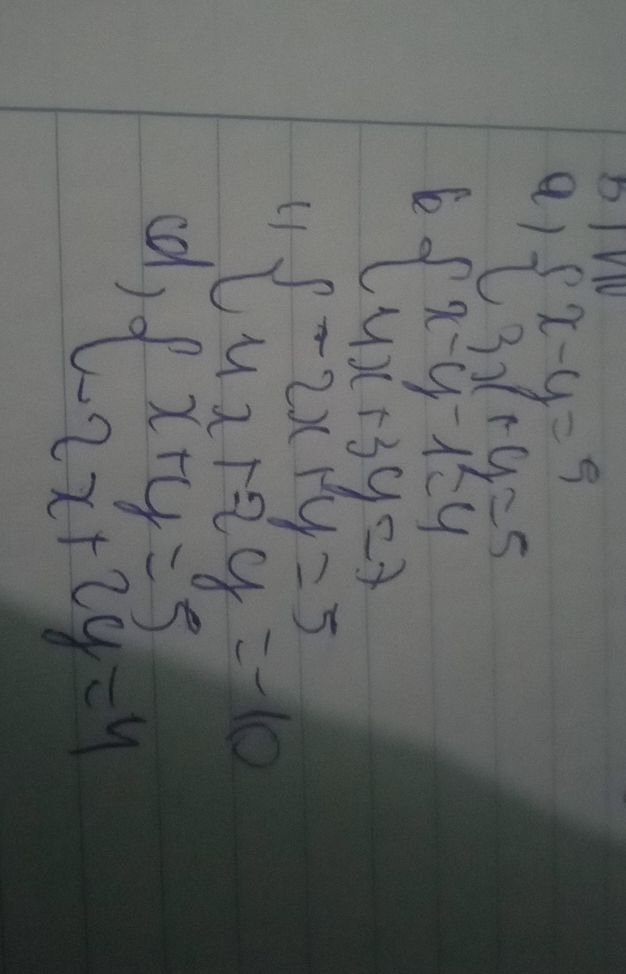 a) { x - y = 5
3x + y = 5
b { x - y - 1 = y
4x + 3y = 7
{ -2x + y = 5
4x + 2y = -10
d) { x + y = 5
-2x + 2y = 4